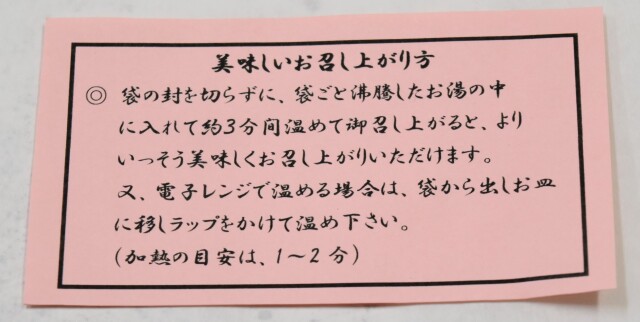 美味しいお召し上がり方
◎ 袋の封を切らずに、袋ごと沸騰したお湯の中
に入れて約3分間温めて御召し上がると、より
いっそう美味しくお召し上がりいただけます。
又、電子レンジで温める場合は、袋から出しお皿
に移しラップをかけて温め下さい。
(加熱の目安は、1〜2分)